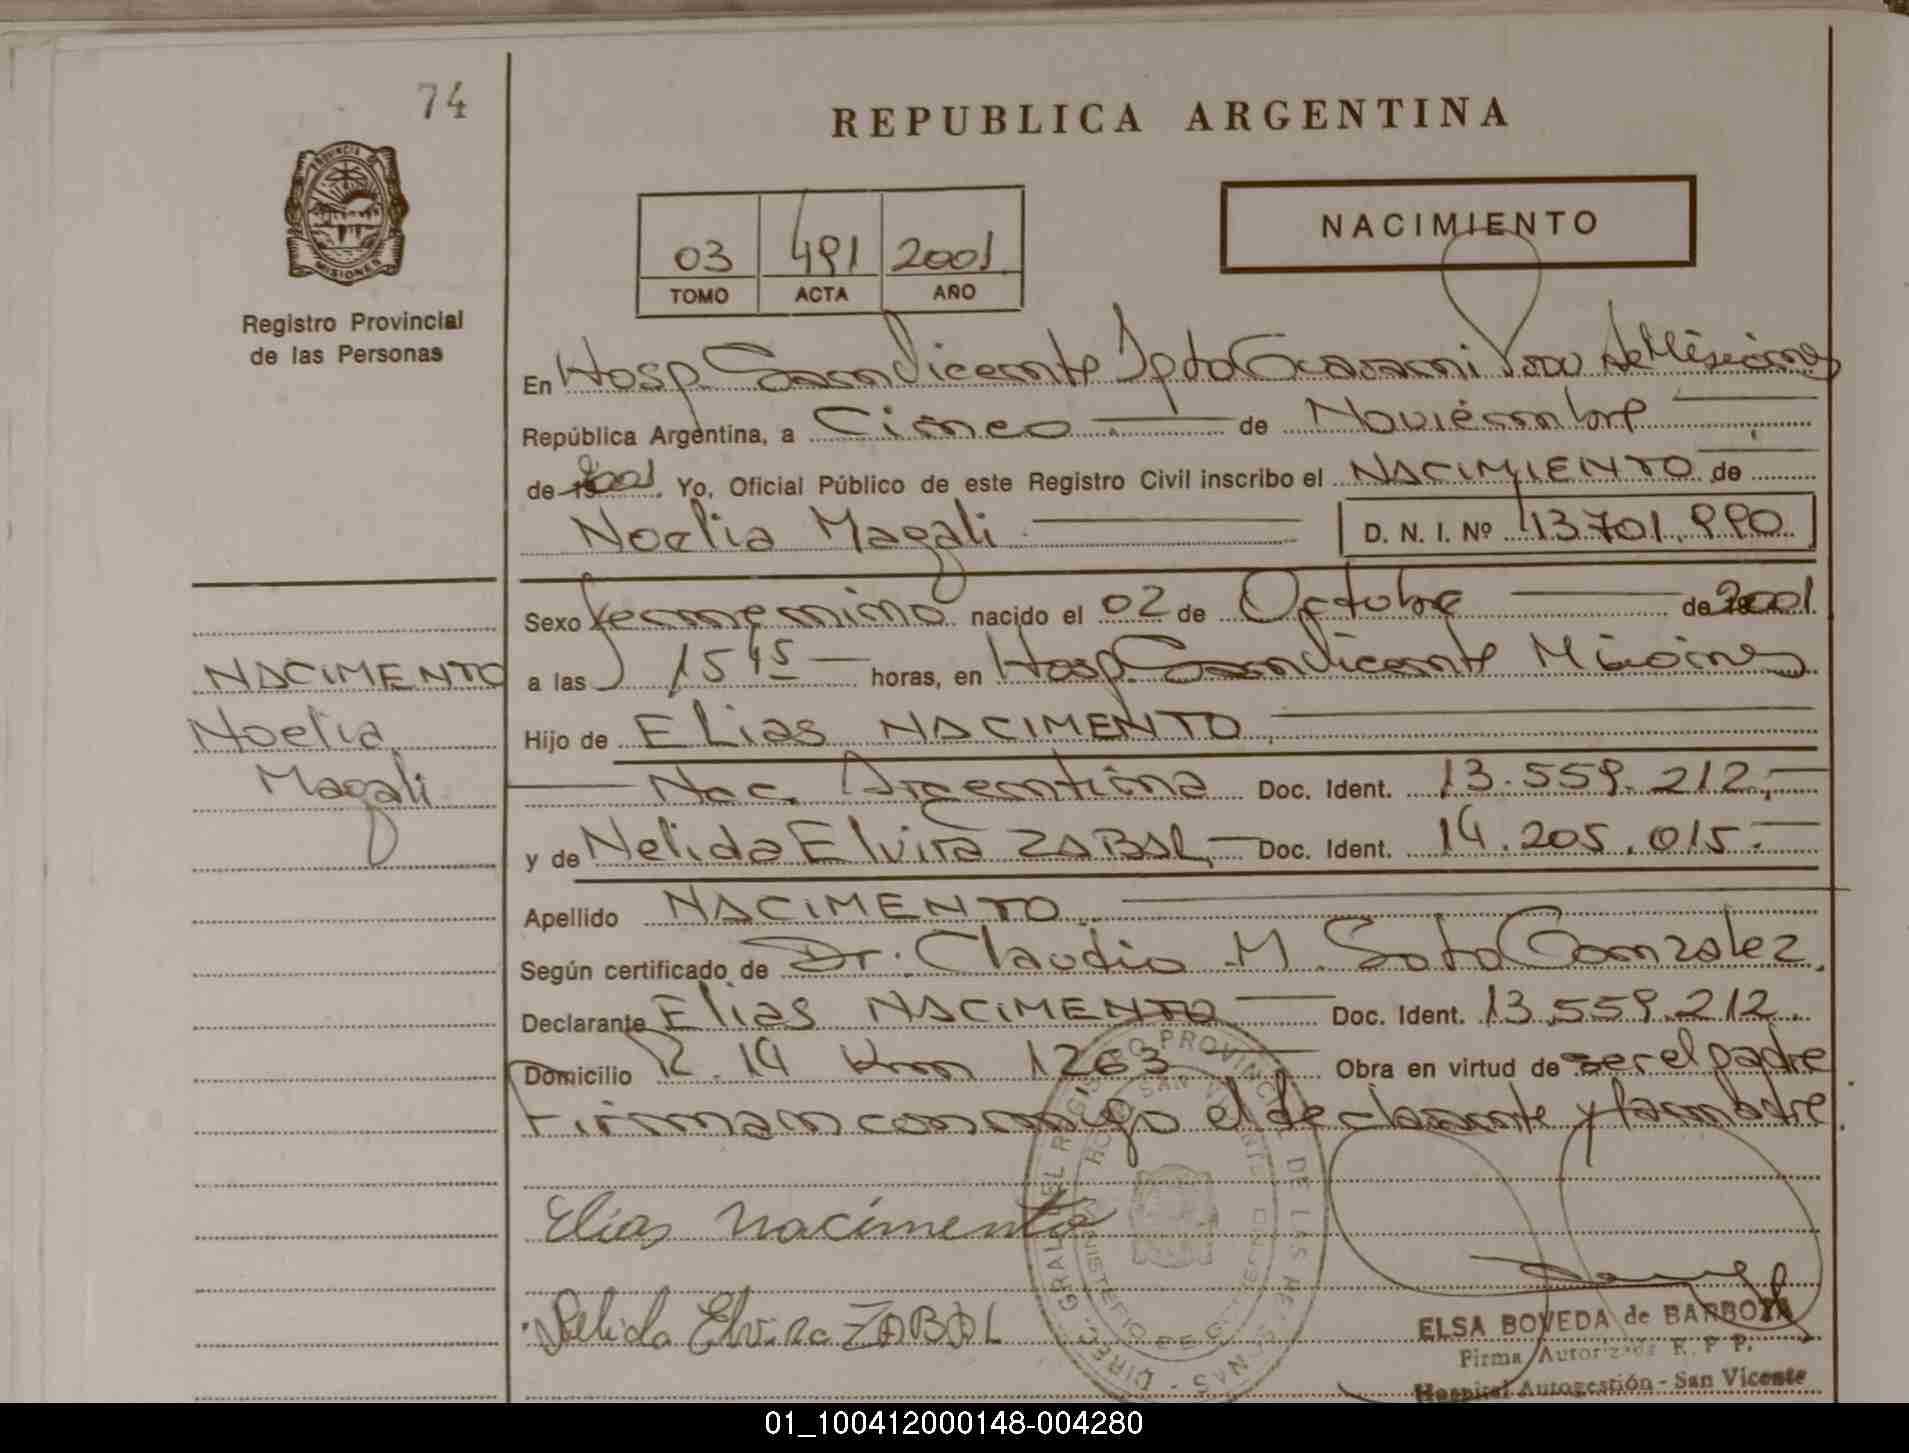 74
REPUBLICA ARGENTINA
PROVINCIA DE
MISIONES
Registro Provincial
de las Personas
03 491 2001
TOMO ACTA AÑO
NACIMIENTO
En Hosp. San Vicente Dpto Guarani Pcia de Misiones
República Argentina, a Cinco de Noviembre
de 2001. Yo, Oficial Público de este Registro Civil inscribo el NACIMIENTO de
Noelia Magali D. N. I. Nº 43.701.990.
Sexo femenino nacido el 02 de Octubre de 2001
a las 15 45 horas, en Hosp. San Vicente Misiones
Hijo de Elias NACIMENTO
Nac. Argentina Doc. Ident. 13.559.212.
y de Nelida Elvira ZABAL Doc. Ident. 14.205.015.
Apellido NACIMENTO
Según certificado de Dr. Claudio M. Soto Gonzalez.
Declarante Elias NACIMENTO Doc. Ident. 13.559.212.
Domicilio R. 14 Km 1263 Obra en virtud de ser el padre
Firman conmigo el declarante y la madre.
NACIMENTO
Noelia
Magali
Elias Nacimento
Nelida Elvira ZABAL
ELSA BOVEDA de BARBOZA
Firma Autorizada R. P. P.
Hospital Autogestión - San Vicente
01_100412000148-004280